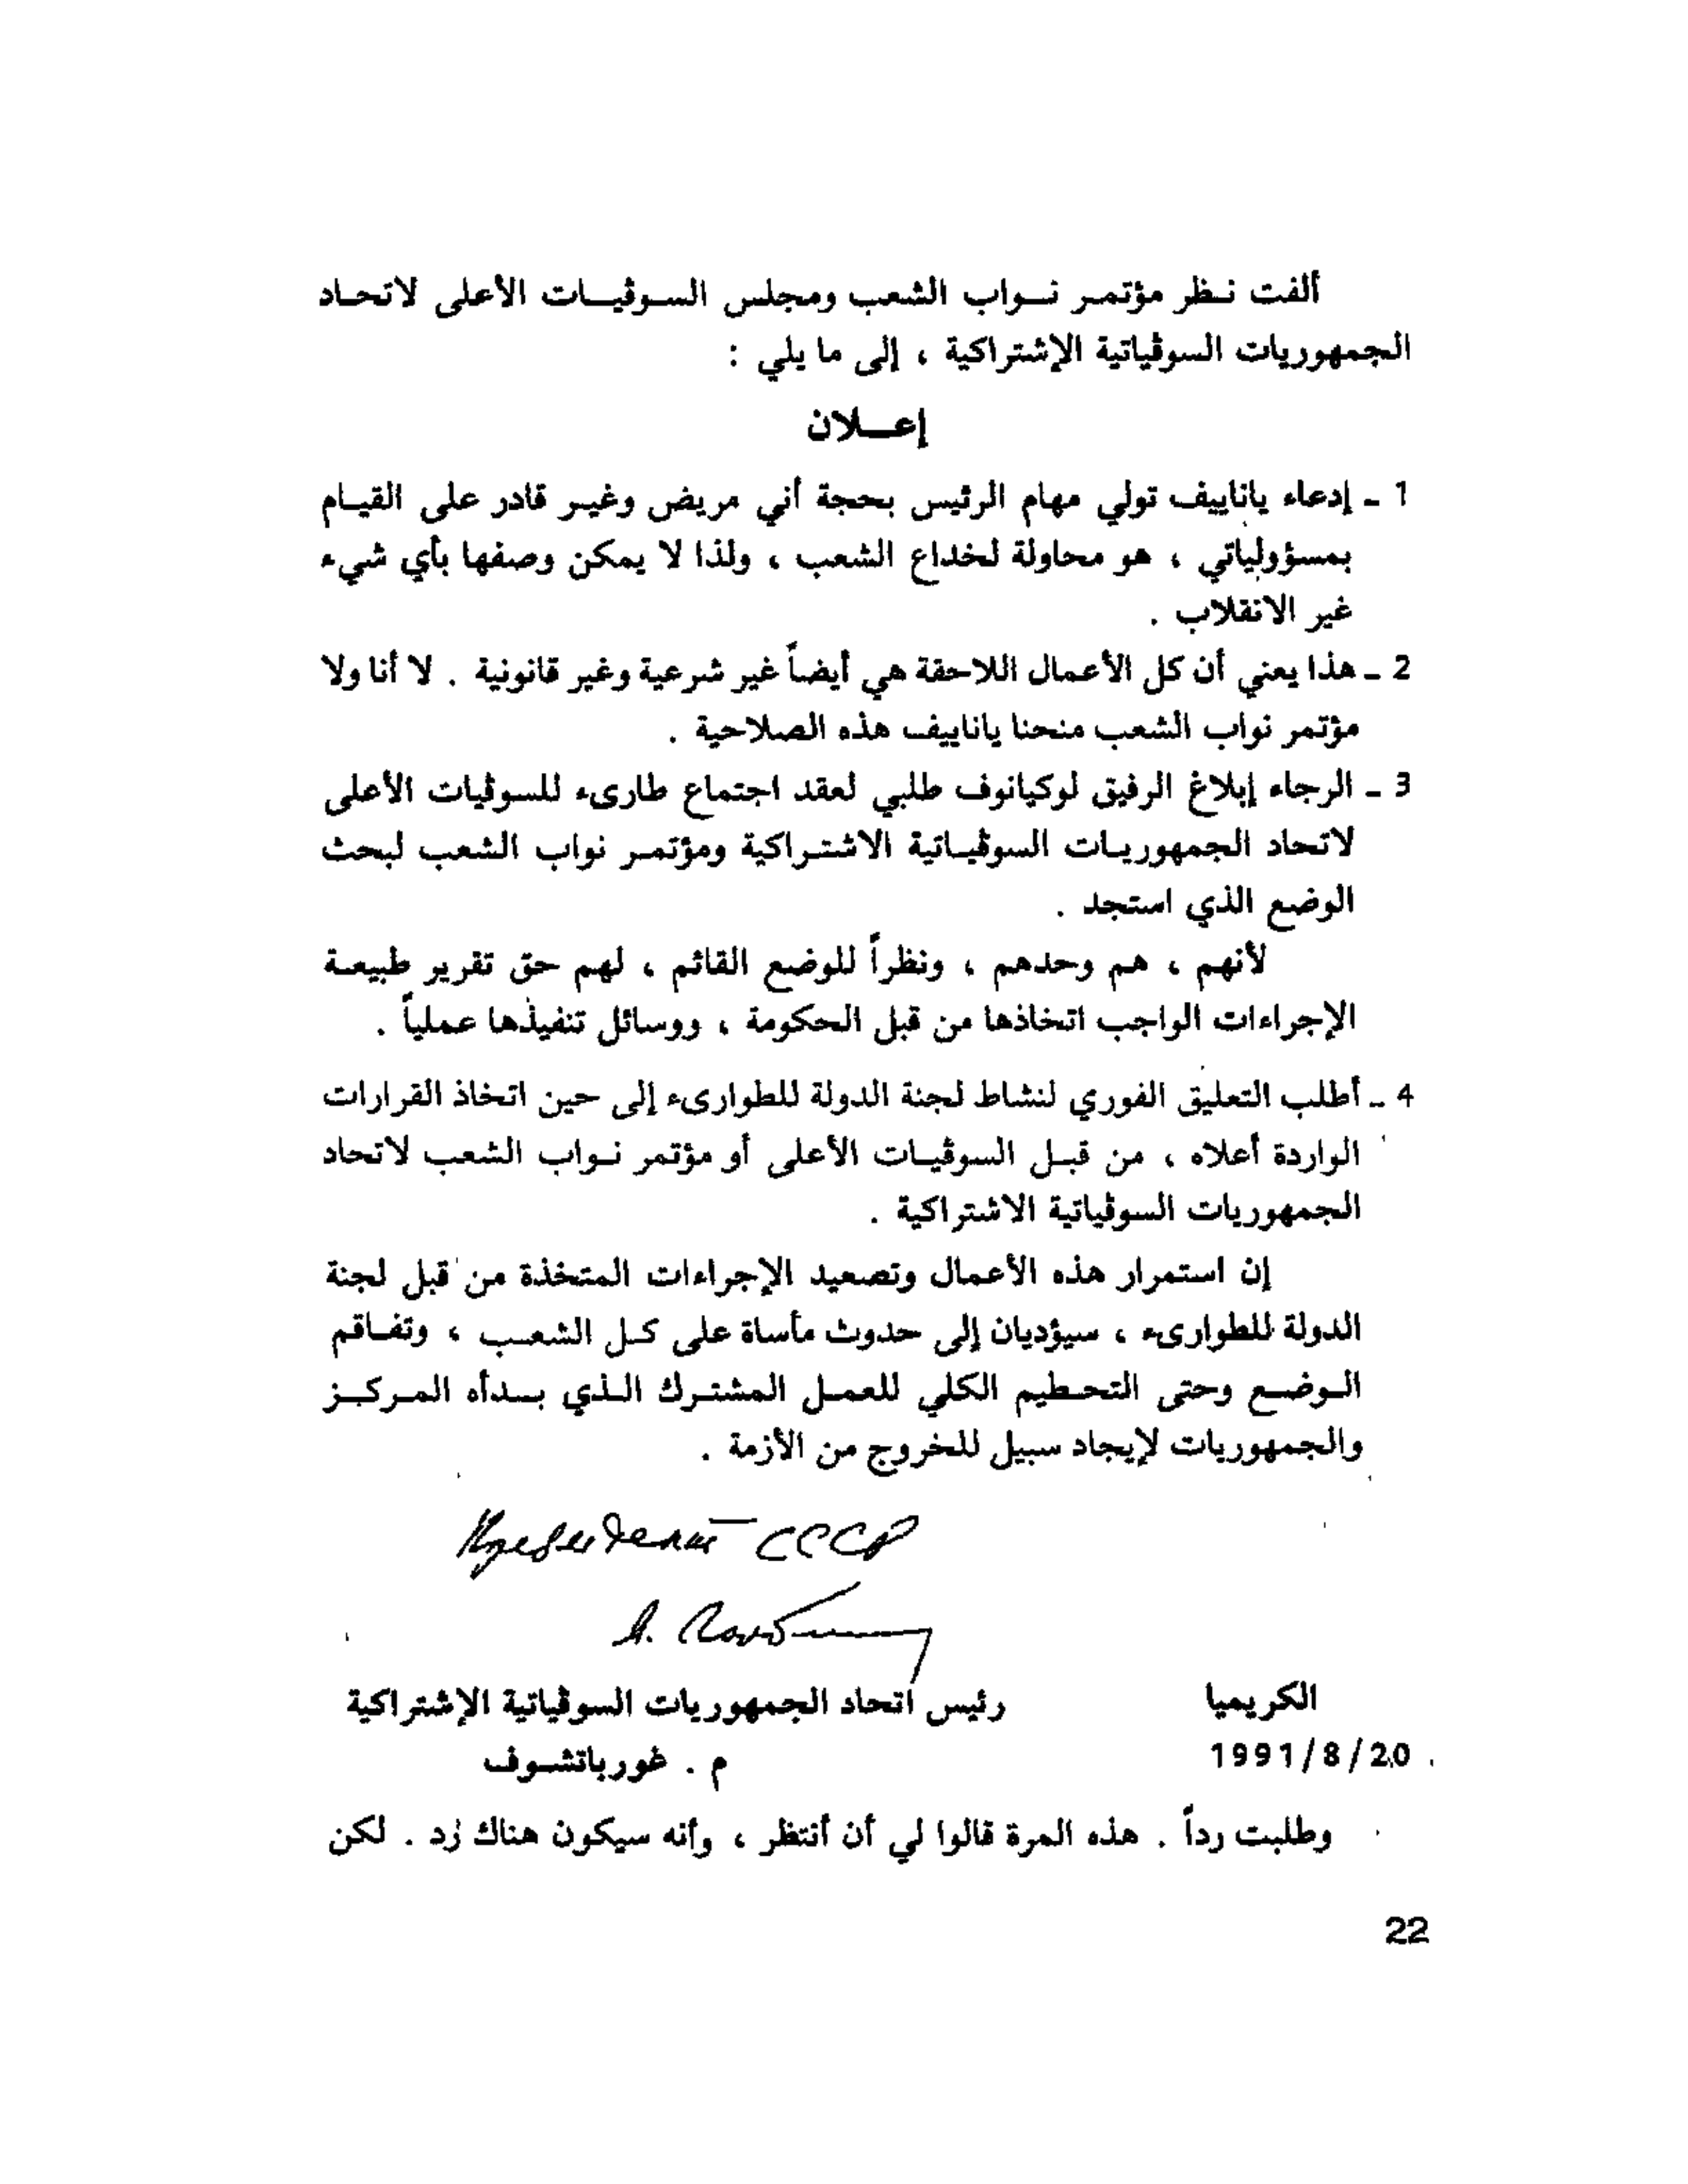 ألفت نظر مؤتمر نواب الشعب ومجلس السوڤيات الأعلى لاتحاد
الجمهوريات السوڤياتية الإشتراكية ، إلى ما يلي :
إعلان
1 - إدعاء ياناييف تولي مهام الرئيس بحجة أني مريض وغير قادر على القيام
بمسؤولياتي ، هو محاولة لخداع الشعب ، ولذا لا يمكن وصفها بأي شيء
غير الانقلاب .
2 - هذا يعني أن كل الأعمال اللاحقة هي أيضاً غير شرعية وغير قانونية . لا أنا ولا
مؤتمر نواب الشعب منحنا ياناييف هذه الصلاحية .
3 - الرجاء إبلاغ الرفيق لوكيانوف طلبي لعقد اجتماع طارىء للسوڤيات الأعلى
لاتحاد الجمهوريات السوڤياتية الاشتراكية ومؤتمر نواب الشعب لبحث
الوضع الذي استجد .
لأنهم ، هم وحدهم ، ونظراً للوضع القائم ، لهم حق تقرير طبيعة
الإجراءات الواجب اتخاذها من قبل الحكومة ، ووسائل تنفيذها عملياً .
4 - أطلب التعليق الفوري لنشاط لجنة الدولة للطوارىء إلى حين اتخاذ القرارات
الواردة أعلاه ، من قبل السوڤيات الأعلى أو مؤتمر نواب الشعب لاتحاد
الجمهوريات السوڤياتية الاشتراكية .
إن استمرار هذه الأعمال وتصعيد الإجراءات المتخذة من قبل لجنة
الدولة للطوارىء ، سيؤديان إلى حدوث مأساة على كل الشعب ، وتفاقم
الوضع وحتى التحطيم الكلي للعمل المشترك الذي بدأه المركز
والجمهوريات لإيجاد سبيل للخروج من الأزمة .
Президент СССР
الكريميا رئيس اتحاد الجمهوريات السوڤياتية الإشتراكية
1991/8/20 م . غورباتشوف
وطلبت رداً . هذه المرة قالوا لي أن أنتظر ، وأنه سيكون هناك رد . لكن
22